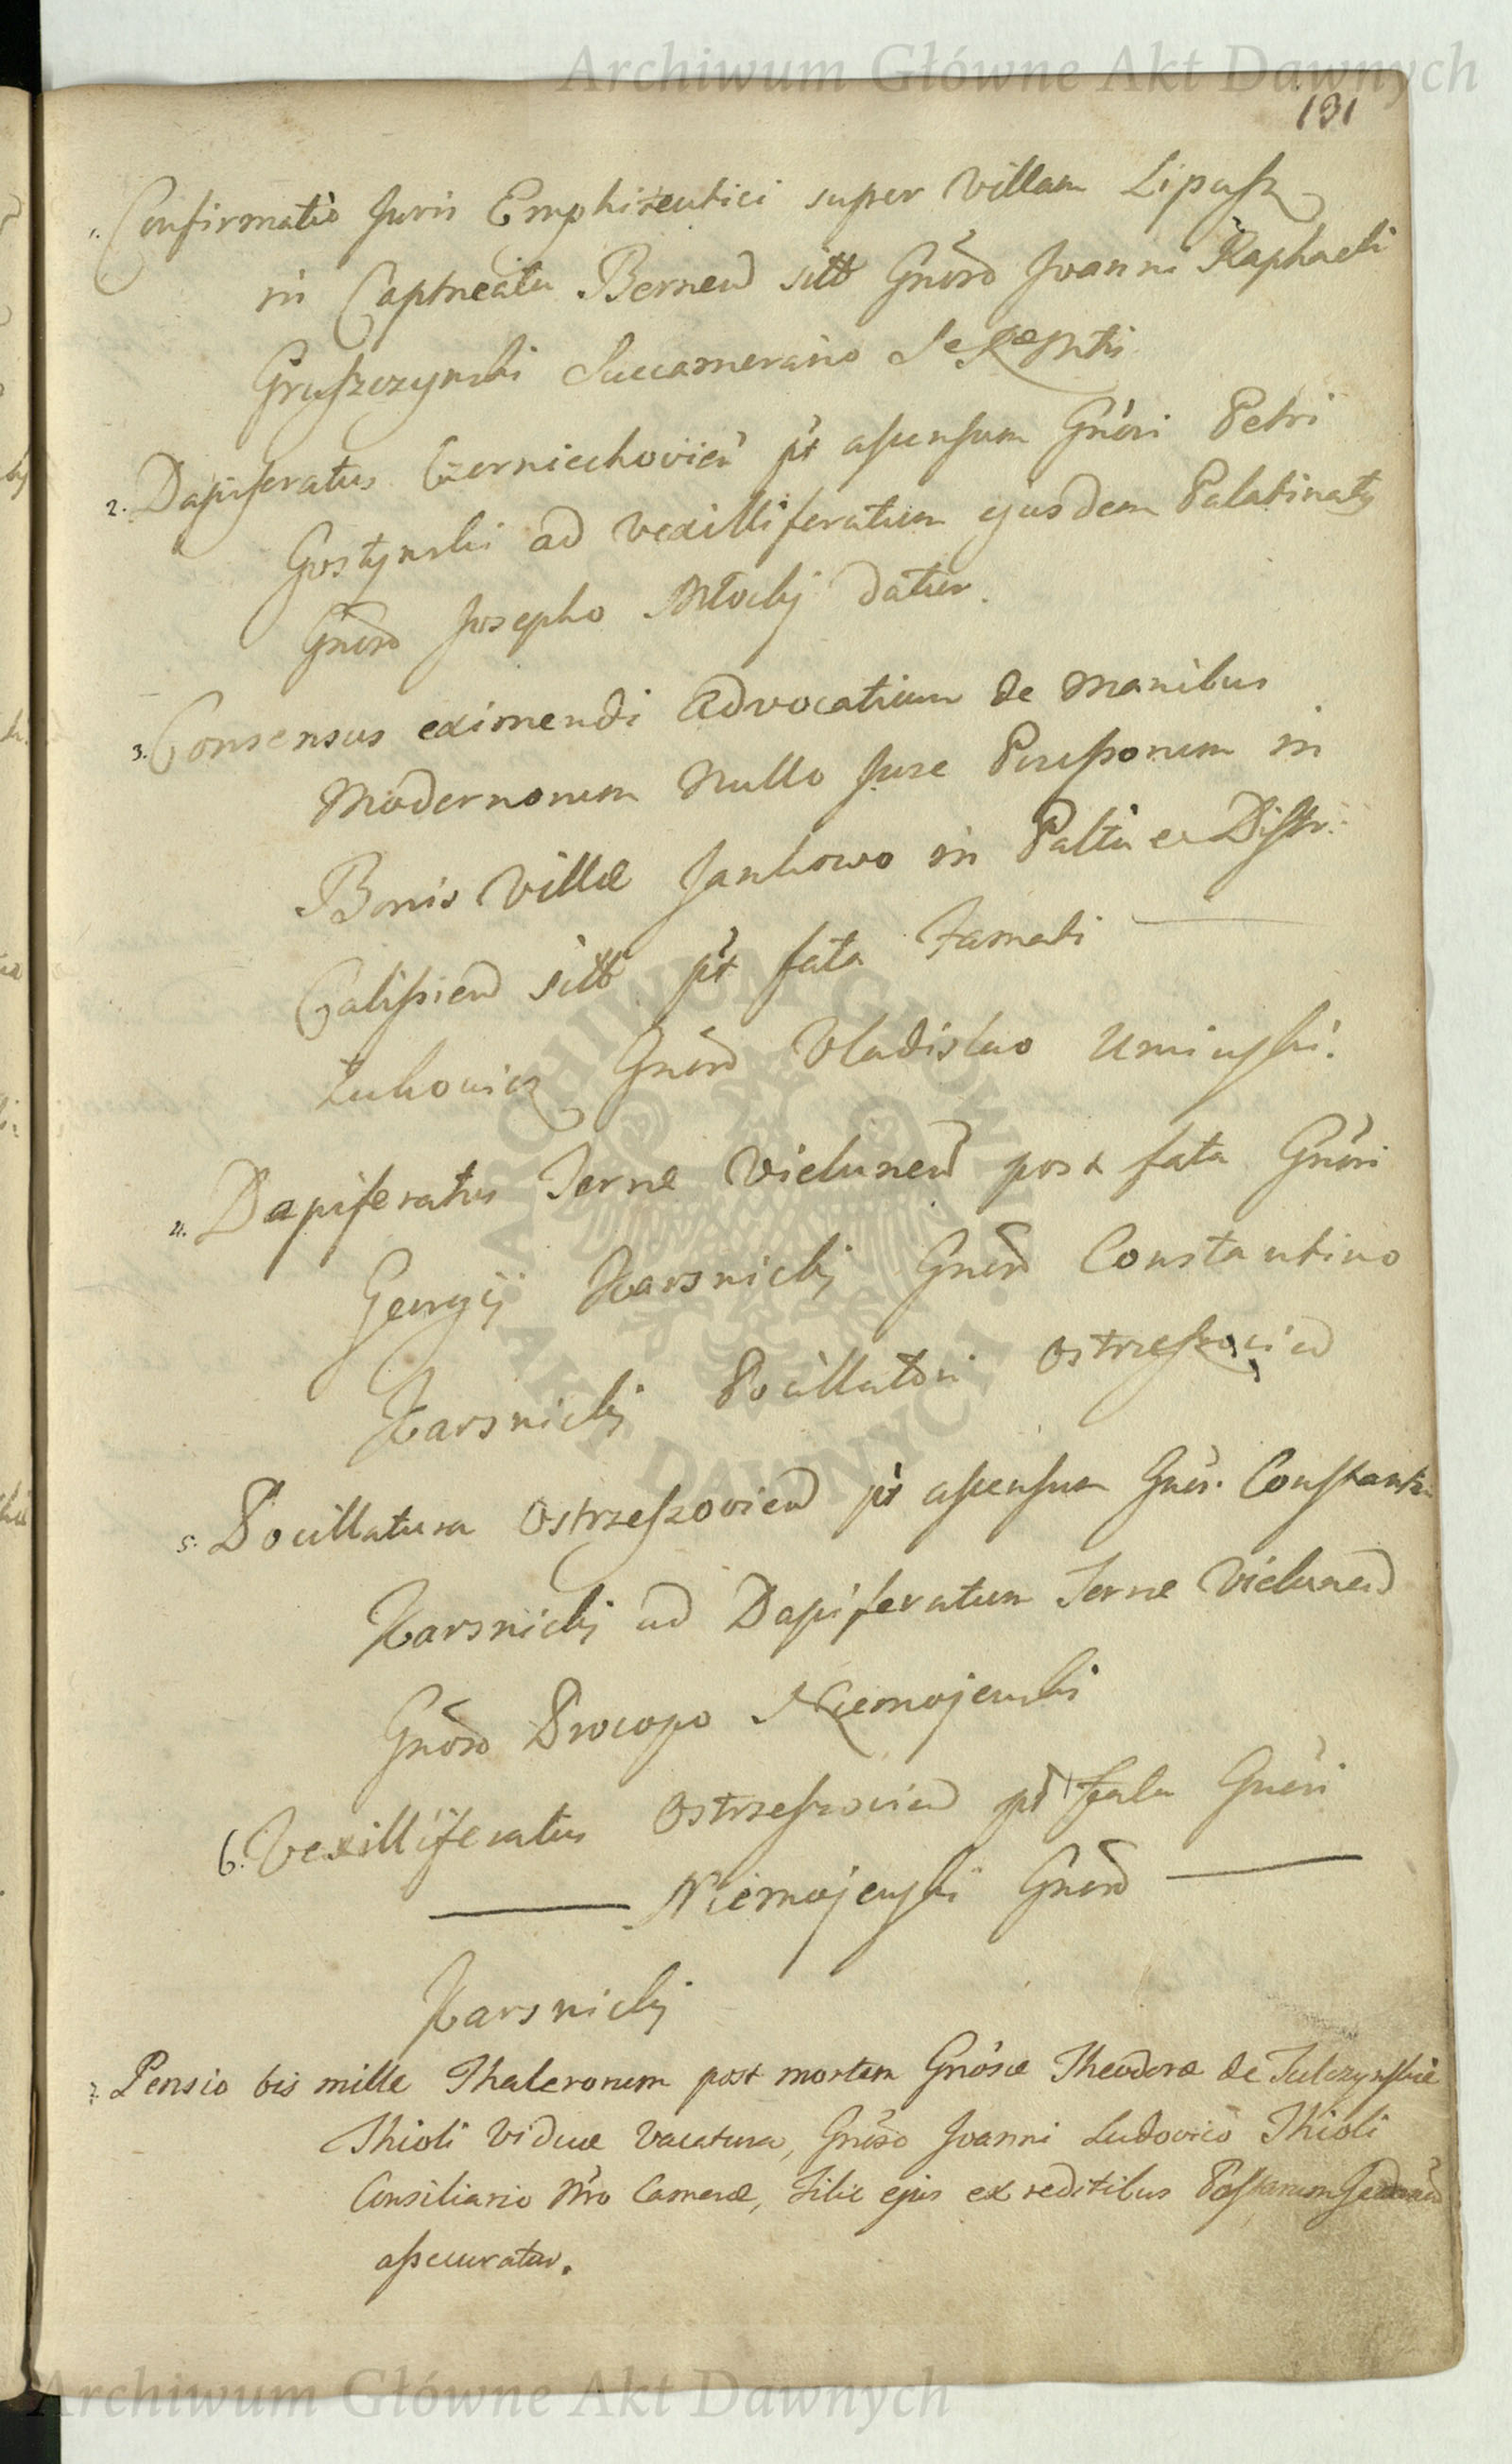 Archiwum Główne Akt Dawnych
131
1. Confirmatio Juris Emphiteutici super Villam Lipusz
in Captneatu Bernen sitt Gnoso Joanni Raphaeli
Gruszczynski Succamerario S R
2. Dapiferatus Czerniechovien pt ascensum Gnosi Petri
Gostynski ad Vexilliferatum ejusdem Palatinatus
Gnoso Josepho Młockj datur.
3. Consensus eximendi Advocatium de manibus
Modernorum Nullo Jure Possessorum in
Bonis Villæ Jankowo in Paltu et Distr:
Calissien sitt pt fata Famati
Lukowicz Gnoso Vladislao Uminski.
4. Dapiferatus Terræ Vielunen post fata Gnosi
Georgij Karsnickj Gnoso Constantino
Karsnickj Pocillatori Ostrzeszovien
5. Pocillatura Ostrzeszovien pt ascensum Gnosi. Constantini
Karsnickj ad Dapiferatum Terræ Vielunen
Gnoso Procopo Niemojewski
6. Vexilliferatus Ostrzeszovien pt fata Gnosi
Niemojewski Gnoso
Karsnickj
7. Pensio bis mille Thalerorum post mortem Gnosæ Theodoræ de Tulczynskie
Thioli Viduæ Vacatura, Gnoso Joanni Ludovico Thioli
Consiliario Nro Cameræ, Filio ejus ex reditibus Postarum
assecuratur.
Archiwum Główne Akt Dawnych